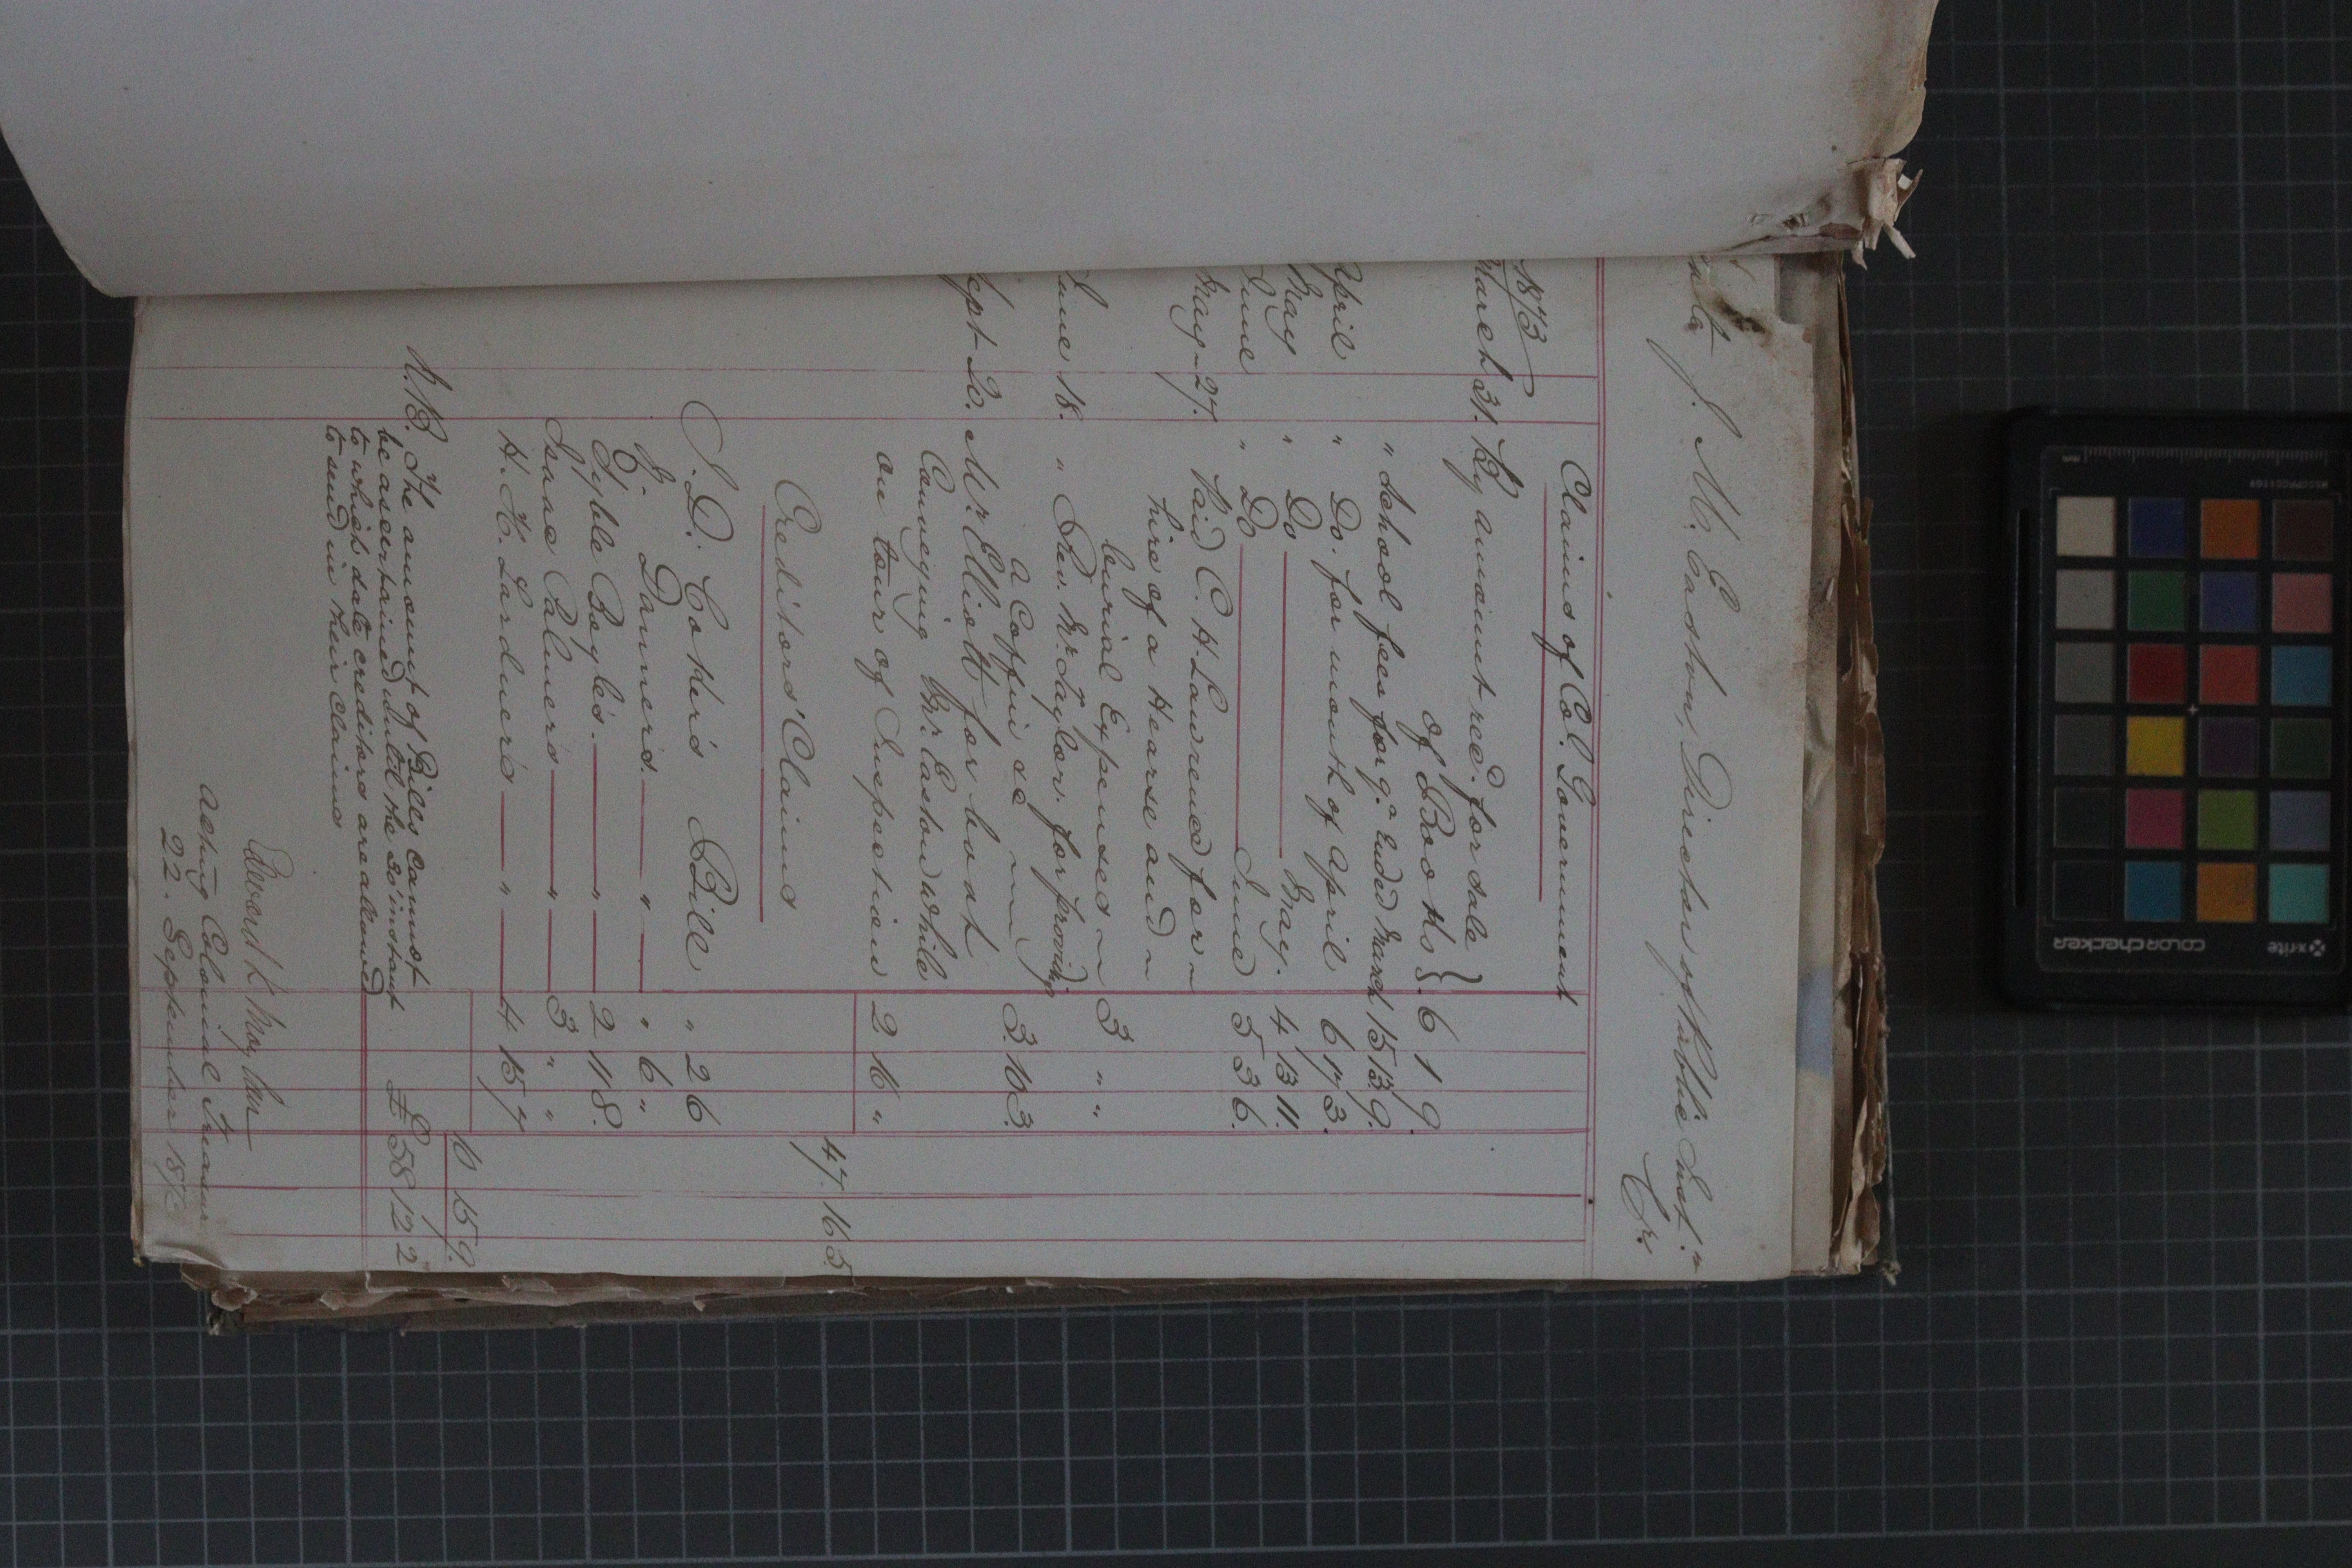 J. M. Easton, Director of Public Inst.n
Cr.
1873
Claims of Col. Government
March 31. By amount recd. for sale
of Books 6 1 9.
" School fees for qr. Ended March 15 13 9.
April " Do. for month of April 6 17 3.
May " Do May. 4 13 11.
June " Do June 5 3 6.
May 27. Paid C. H. Lawrence for
hire of a Hearse and
burial Expenses 3 " "
June 18. " Rev. Mr. Taylor. for providing
a Coffin &c 3. 10 3.
Sept 20. Mr. Elliott for boat
Conveying Mr. Easton while
on tour of Inspection 2 16 "
47. 16 5.
Creditors' Claims
Bill " 2 6
" " 6 "
Syble Boyle's. " 2 11 8.
Isaac Palmer's " 3 " "
H. H. Lardner's " 4 15 7
10 15 9.
N.B. The amount of Bills Cannot
be ascertained until the 30 instant
to which date creditors are allowed
to send in their Claims
£ 58 12 2
Acting Colonial Treasurer
22. September 1873
xrite
colorchecker